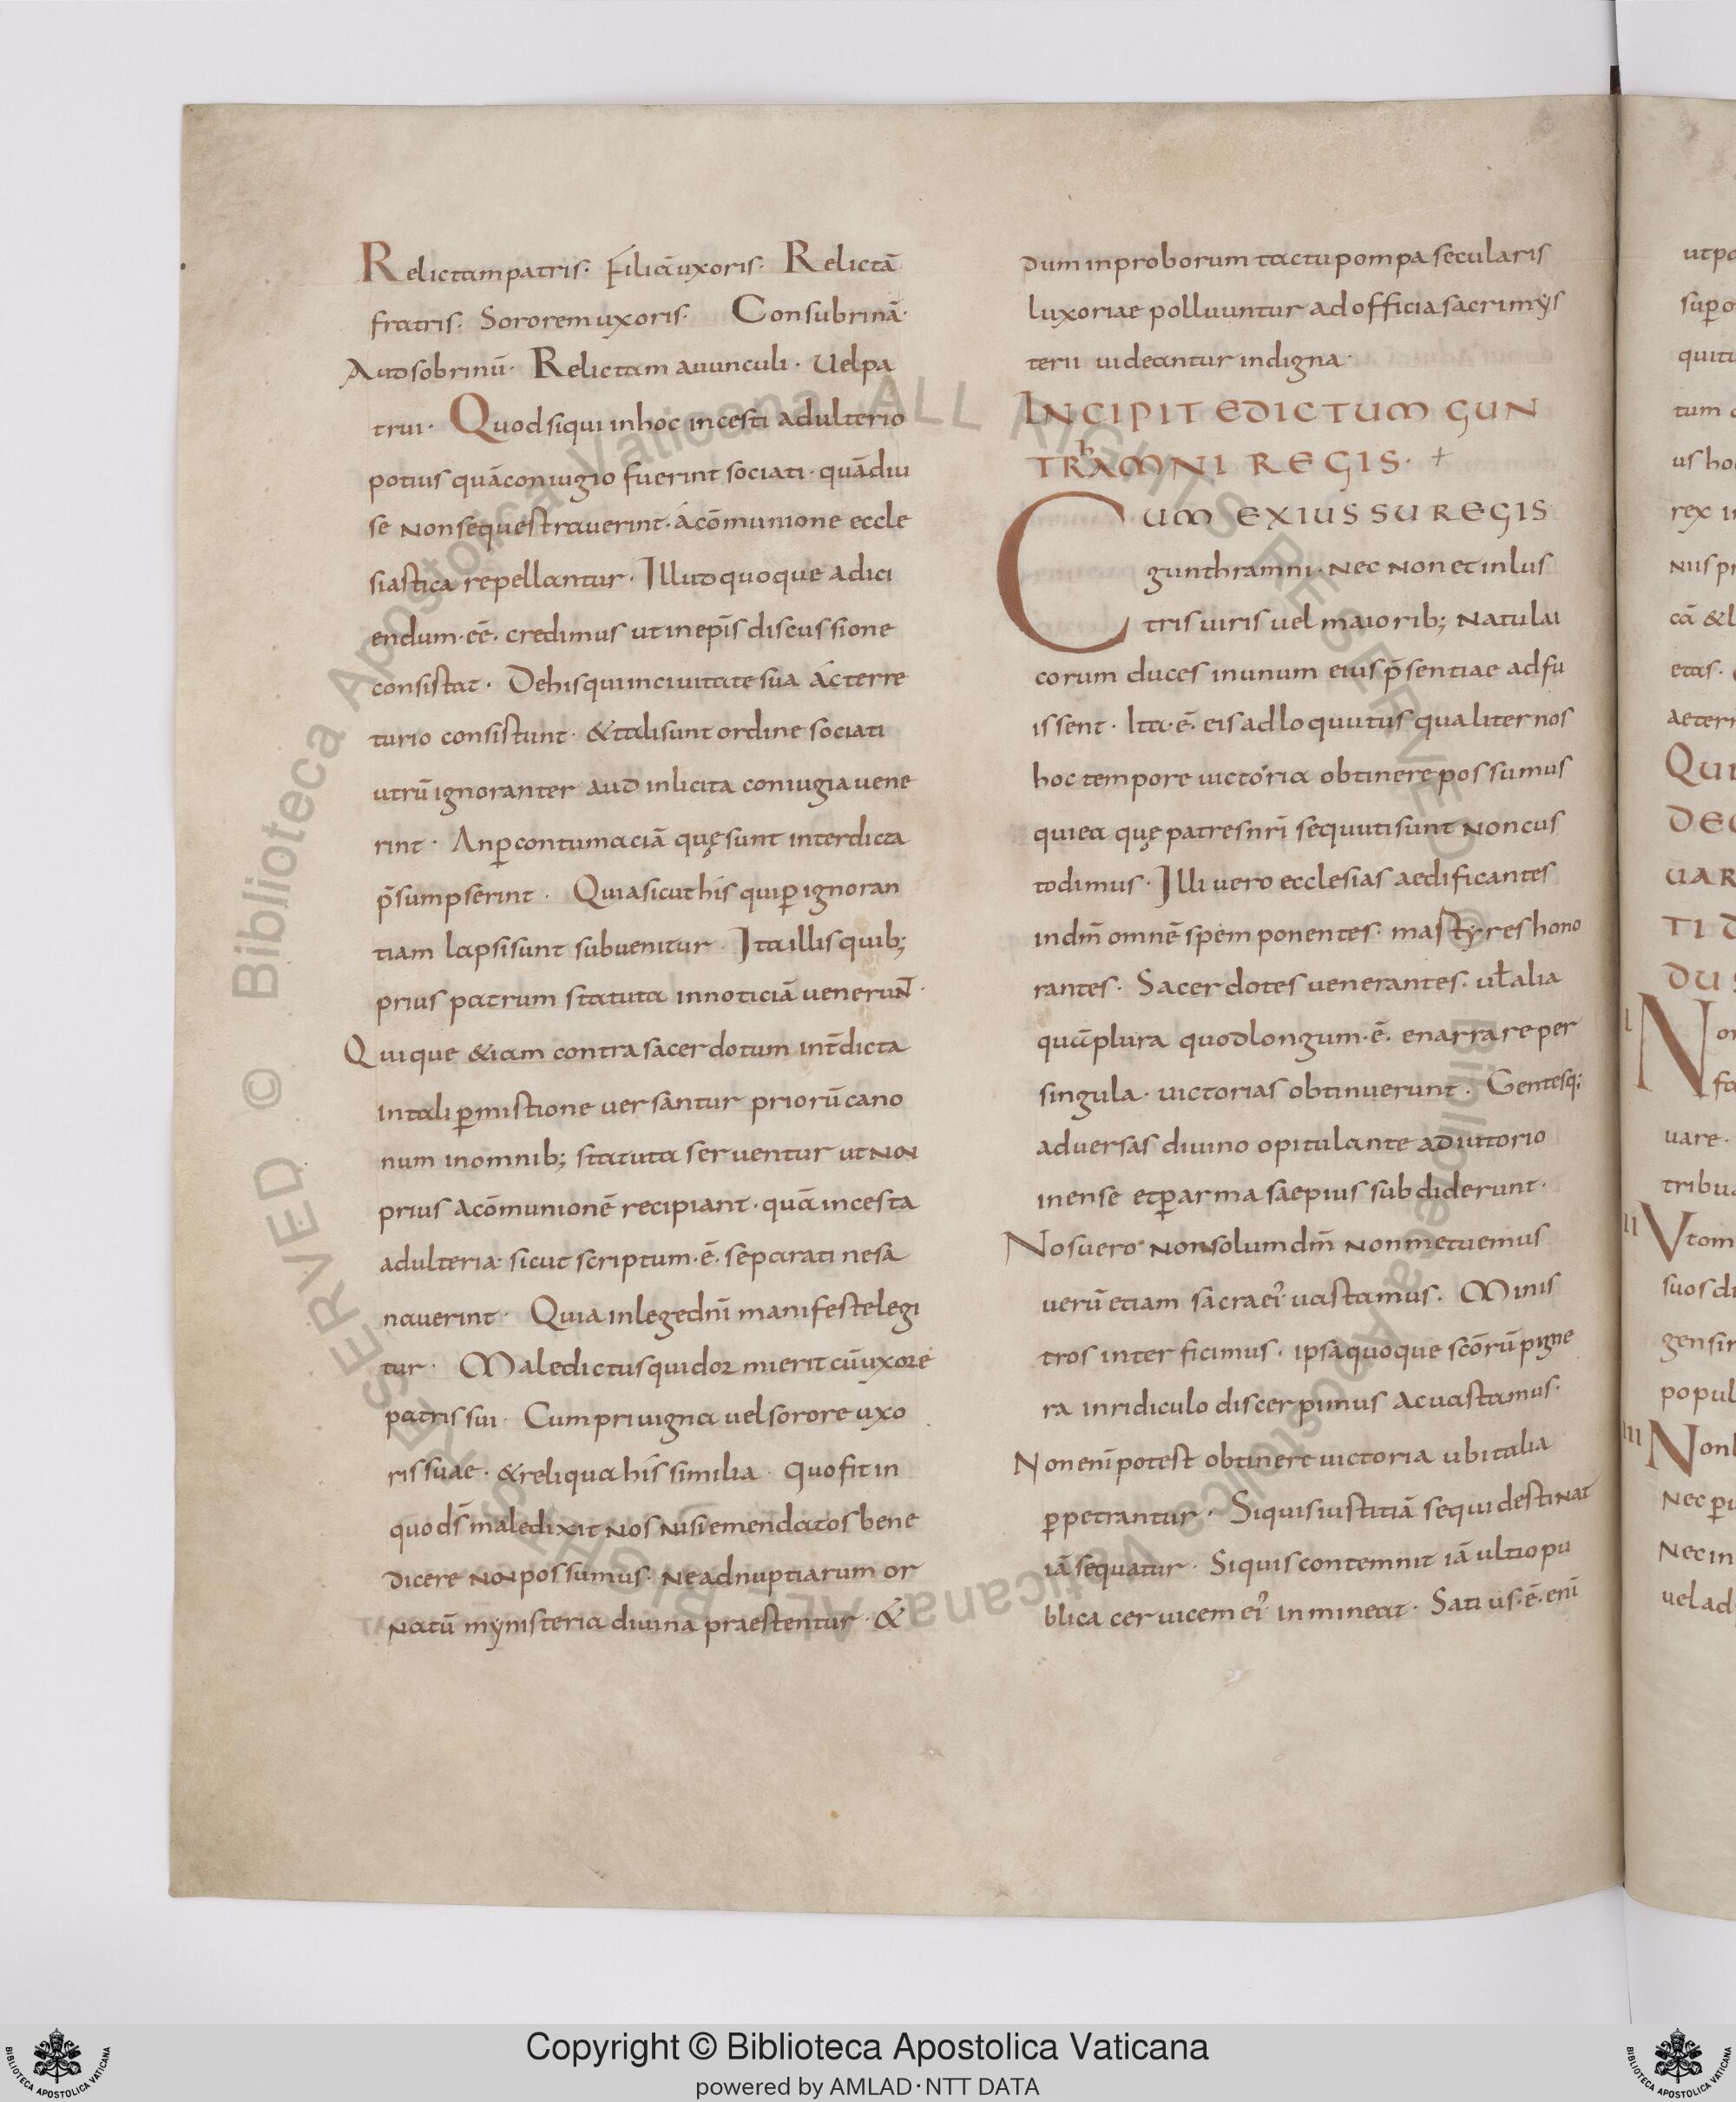 Relictam patris· Filiā uxoris· Relictā
fratris· Sororem uxoris· Consubrinā·
Aud sobrinū· Relictam auunculi· Uelpa
trui· Quodsiqui inhoc incesti adulterio
potius quā coniugio fuerint sociati· quādiu
se nonsequestrauerint· acōmunione eccle
siastica repellantur· Illud quoque adici
endum· eē· credimus ut inep̄is discussione
consistat· Dehis qui inciuitate sua ac terre
turio consistunt· & tali sunt ordine sociati
utrū ignoranter aud inlicita coniugia uene
rint· An ꝑ contumaciā quę sunt interdicta
p̄sumpserint· Quia sicut his qui ꝑ ignoran
tiam lapsi sunt subuenitur· Ita illis quib;
prius patrum statuta innoticiā uenerunT·
Quique &iam contra sacerdotum int̄dicta
intali ꝑmistione uersantur priorū cano
num inomnib; statuta seruentur ut non
prius acōmunionē recipiant· quā incesta
adulteria· sicut scriptum· ē· separati nesā
nauerint· Quia inlege dn̄i manifeste legi
tur· Maledictus qui dormierit cū uxore
patris sui· Cum priuigna uel sorore uxo
ris suae· & reliqua his similia· Quo fit in
quo ds̄ maledixit nos nisi emendatos bene
dicere non possumus· Ne ad nuptiarum or
natū mẏnisteria diuina praestentur· &
dum inproborum tactu pompa secularis
luxoriae polluuntur ad officia sacri mẏs
terii uideantur indigna·
INCIPIT EDICTUM GUN
THRAMNI REGIS· +
CUM EX IUSSU REGIS
gunthramni· nec non et inlus
tris uiris uel maiorib; natu lai
corum duces inunum eius p̄sentiae adfu
issent· Ita· ē· eis adloquutus qualiter nos
hoc tempore uictoria obtinere possumus
quiea quę patres nr̄i sequuti sunt non cus
todimus· Illi uero ecclesias aedificantes
indm̄ omnē spem ponentes· mastẏres hono
rantes· Sacerdotes uenerantes· uł alia
quā plura quod longum· ē· enarrare per
singula· uictorias obtinuerunt· Gentesq;
aduersas diuino opitulante adiutorio
inense et ꝑ arma saepius subdiderunt·
Nos uero non solum dm̄ non metuemus
uerū etiam sacra ei' uastamus· Minis
tros interficimus· ipsa quoque scōrū pigne
ra inridiculo discerpimus ac uastamus·
Non enī potest obtinere uictoria ubi talia
ꝑpetrantur· Siquis iustitiā sequi destinat
iā sequatur· Siquis contemnit iā ultio pu
blica ceruicem ei' inmineat· Satius· ē· enī
utpo
suꝑo
quitu
tum
us ho
rex i
nus pr
cā &l
etas·
aeter
QUI
DEC
UAR
TI D
DU
I No
fa
uare·
tribu
II Vtom
suos di
gensin
popul
III Nonl
nec ꝑ
nec in
uel ad
Copyright © Biblioteca Apostolica Vaticana
powered by AMLAD·NTT DATA